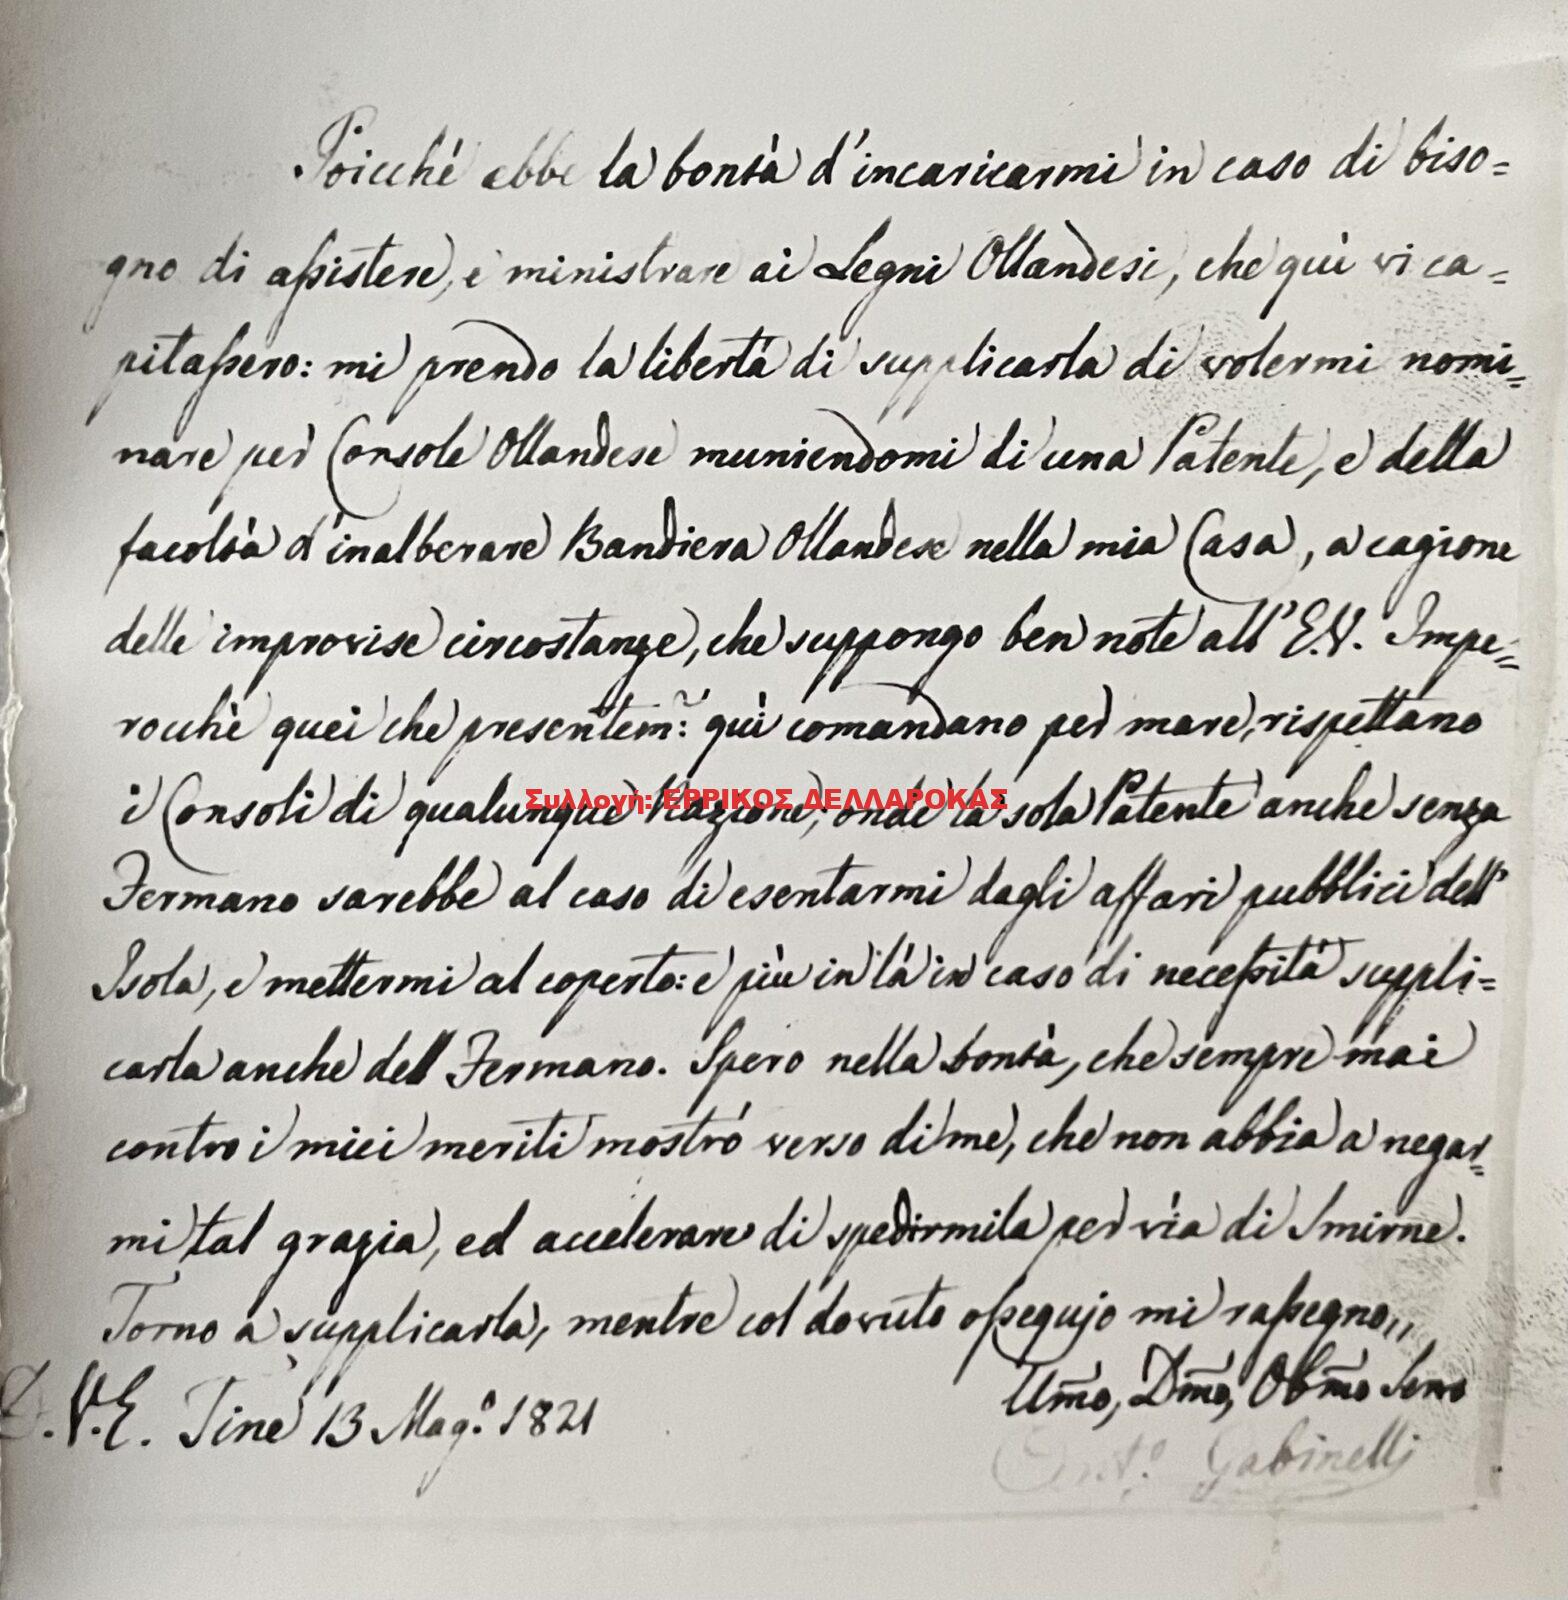 Poicché ebbe la bontà d'incaricarmi in caso di biso=
gno di assistere, e ministrare ai Legni Ollandesi, che quì vi ca=
pitassero: mi prendo la libertà di supplicarla di volermi nomi=
nare per Console Ollandese muniendomi di una Patente, e della
facoltà d'inalberare Bandiera Ollandese nella mia Casa, a cagione
delle improvise circostanze, che suppongo ben note all'E.V. Impe=
rocchè quei che presentem: quì comandano per mare, rispettano
i Consoli di qualunque Nazione; onde la sola Patente anche senza
Συλλογή: ΕΡΡΙΚΟΣ ΔΕΛΛΑΡΟΚΑΣ
Fermano sarebbe al caso di esentarmi dagli affari pubblici dell'
Isola, e mettermi al coperto: e più in là in caso di necessità suppli=
carla anche dell Fermano. Spero nella bontà, che sempre mai
contro i miei meriti mostrò verso di me, che non abbia a negar=
mi tal grazia, ed accelerare di spedirmila per via di Smirne.
Torno a supplicarla, mentre col dovuto ossequjo mi rassegno,,
D. V. E. Tine 13 Mag.º 1821
Umo, Dmo, Obmo Servo
Ant.º Gabinelli